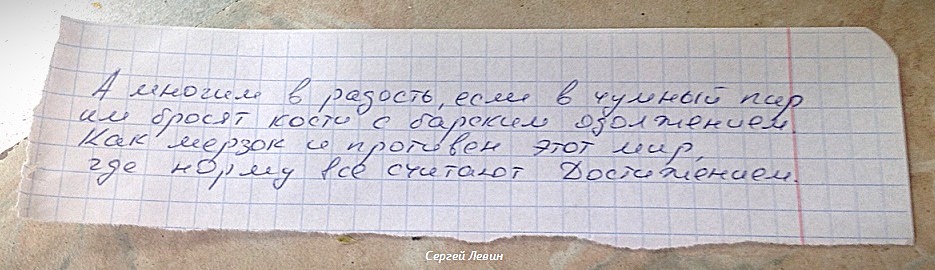 А многим в радость, если в чумный пир
им бросят кости с барским одолжением.
Как мерзок и противен этот мир,
где норму все считают Достижением.
Сергей Левин